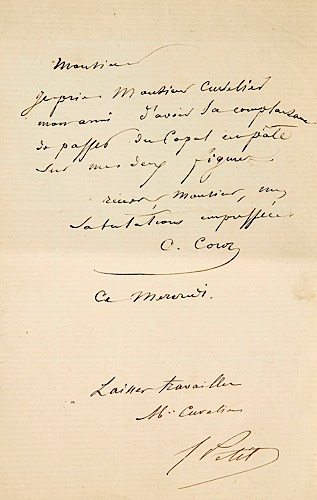 Monsieur
Je prie Monsieur Cuvelier
mon ami d'avoir la complaisance
de passer du Copal en pâte
sur mes deux figures
recevez, Monsieur, mes
salutations empressées
C. Corot
Ce Mercredi.
Laisser travailler
Mr Cuvelier
Petit